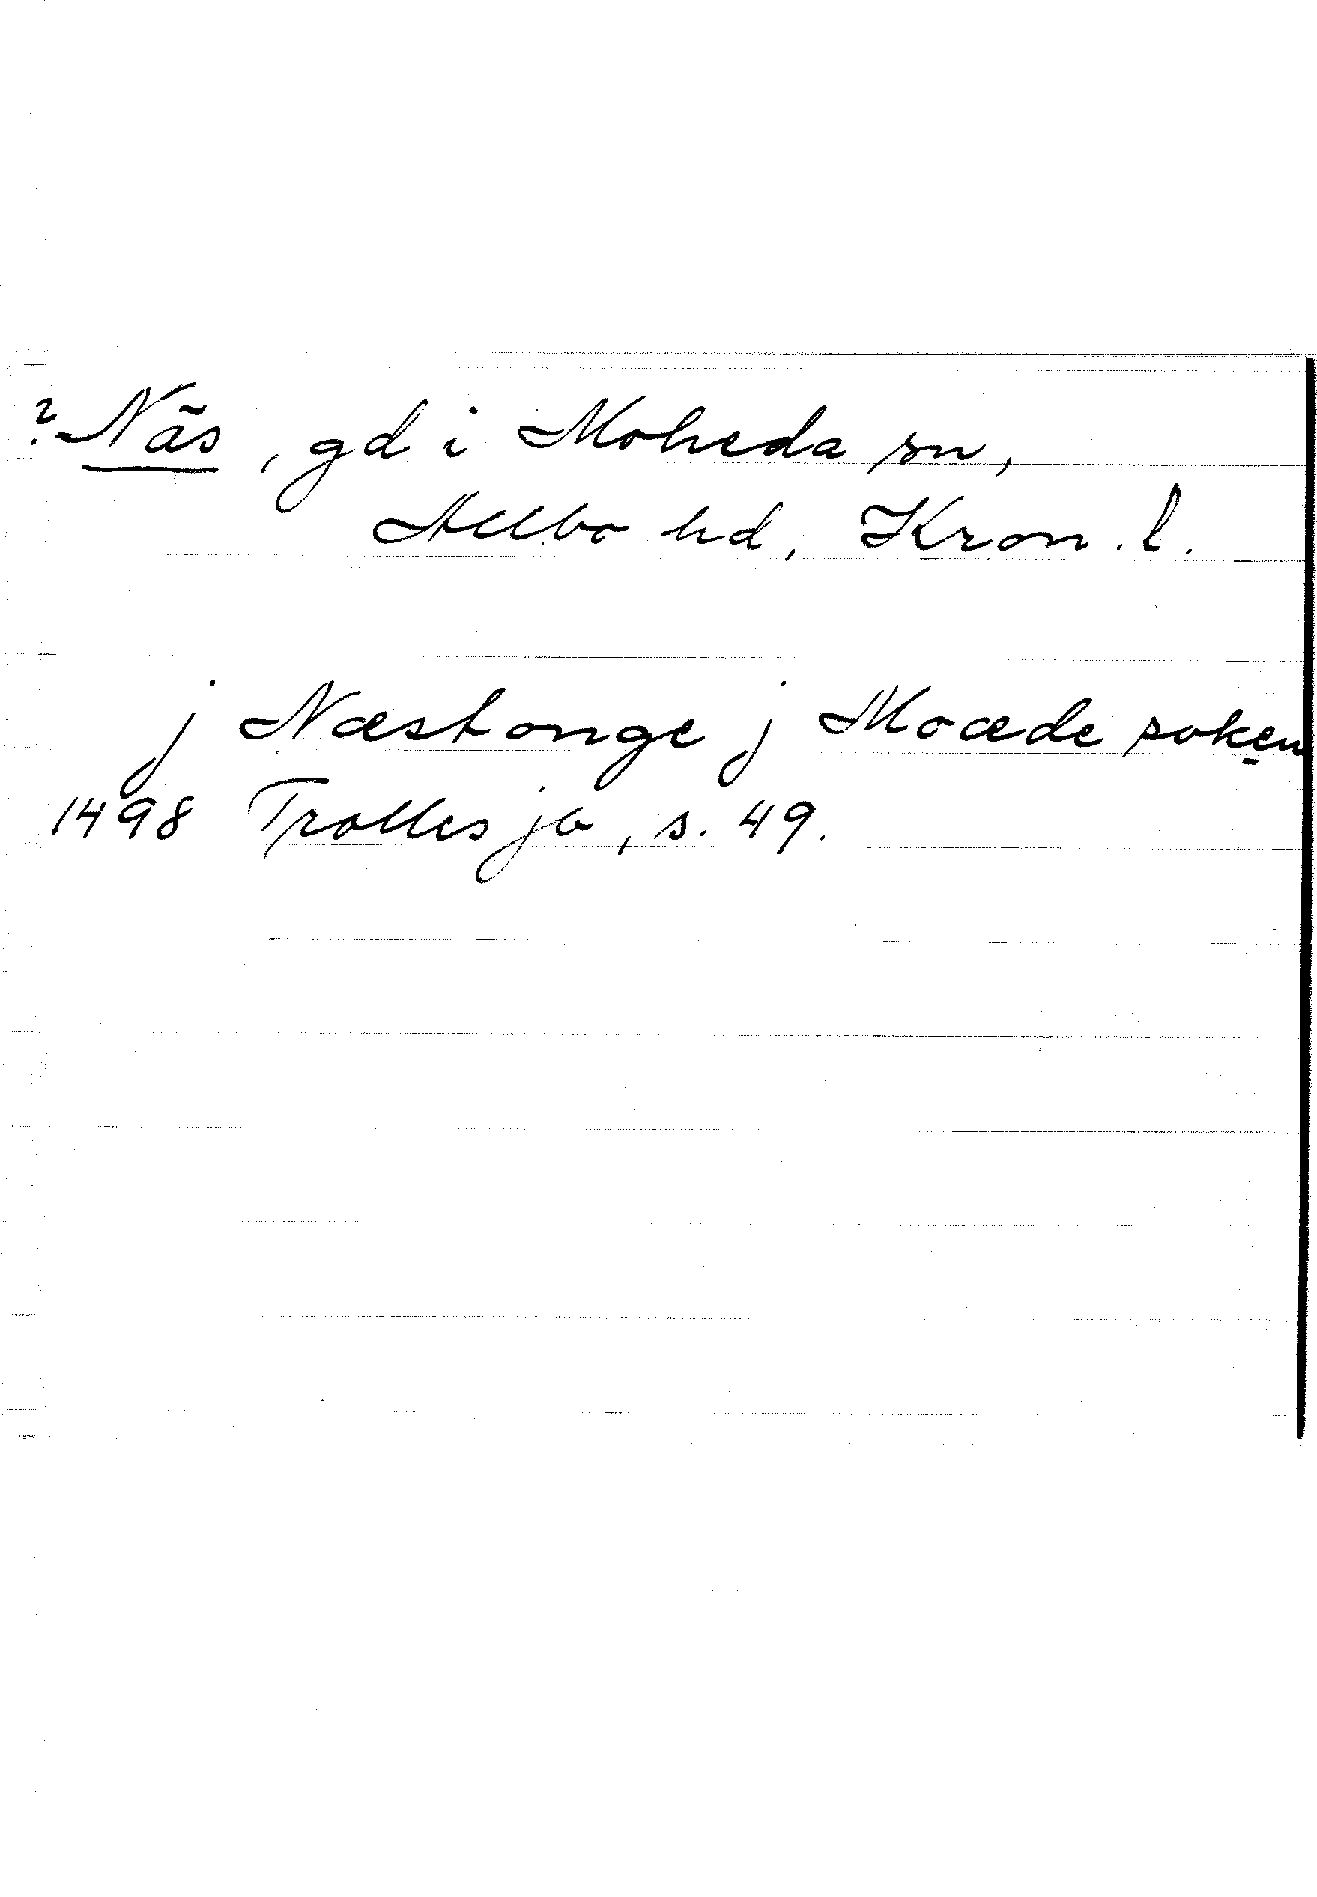 ? Näs, gd i Moheda sn,
Allbo hd, Kron. l.
j Næstonge j Moæde soken
1498 Trolles jb, s. 49.